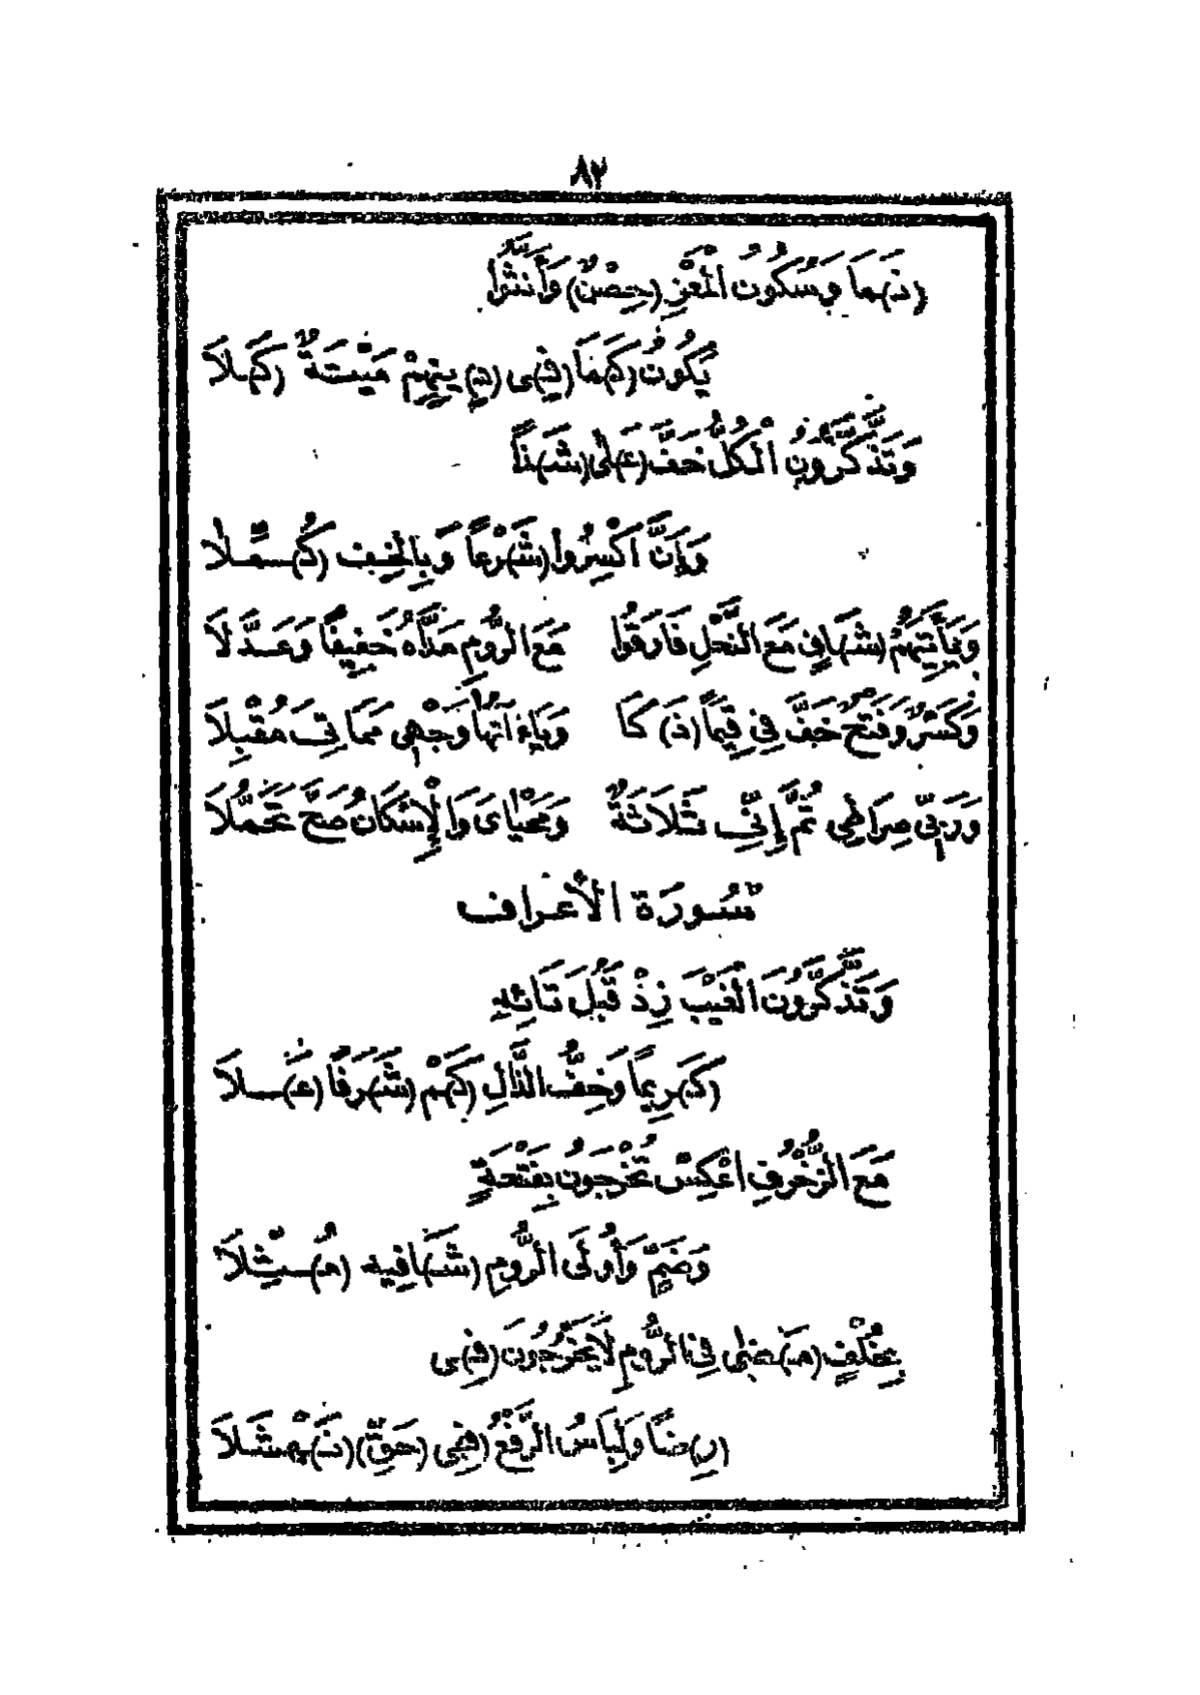 ٨٢
(نَـ)ـمَا وَسُكُونُ الْمَعْزِ (حِصْنٌ) وَأَنَّثُوا
يَكُونُ (كَـ)ـمَا (فِـ)ـى (دِ) ينِهِمْ مَيْتَةٌ (كَـ)ـلَا
وَتَذَّكَّرُونَ الْكُلُّ خَفَّ (عَـ)ـلَى (شَـ)ـذًا
وَإِنَّ اكْسِرُوا (شَـ)ـرْعاً وَبِالْخِفِّ (كُـ)ـمِّلَا
وَيَأْتِيَهُمْ (شَـ)ـافٍ مَعَ النَّحْلِ فَارَقُوا مَعَ الرُّومِ مَدَّاهُ خَفِيفًا وَعَدَّلَا
وَكَسْرٌ وَفَتْحٌ خَفَّ فِى قِيَماً (ذَ) كَا وَيَاءَاتُهَا وَجْهِى مَمَاتِىَ مُقْبِلَا
وَرَبِّى صِرَاطِى ثُمَّ إِنِّى ثَلَاثَةٌ وَمَحْيَاىَ وَالْإِسْكَانُ صَحَّ تَحَمُّلَا
سُورَة الأعراف
وَتَذَّكَّرُونَ الْغَيْبَ زِدْ قَبْلَ تَائِهِ
(كَـ)ـرِيماً وَخِفُّ الذَّالِ (كَـ)ـمْ (شَـ)ـرَفًا (عَـ)ـلَا
مَعَ الزُّخْرُفِ اعْكِسْ تُخْرَجُونَ بِفَتْحَةٍ
وَضَمٍّ وَأُولَى الرُّومِ (شَـ)ـافِيهِ (مُـ)ـثِّلَا
بِخُلْفٍ (مَـ)ـضَى فِى الرُّومِ لَا يَخْرُجُونَ (فِـ)ـى
(رِ)ضًا وَلِبَاسُ الرَّفْعُ (فِـ)ـى (حَقِّ) (نَـ)ـهْشَلَا